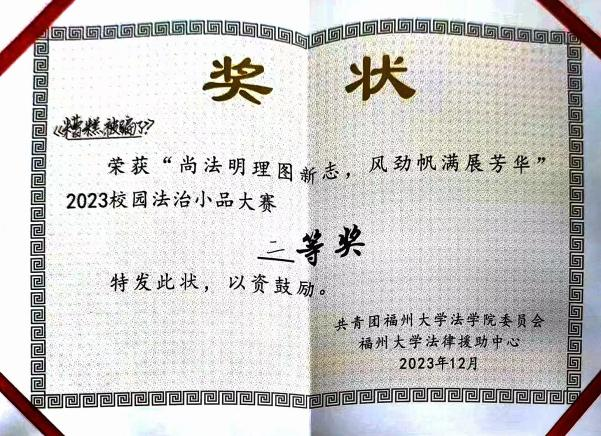 奖 状
《糟糕被骗了》
荣获“尚法明理图新志，风劲帆满展芳华”
2023校园法治小品大赛
二等奖
特发此状，以资鼓励。
共青团福州大学法学院委员会
福州大学法律援助中心
2023年12月